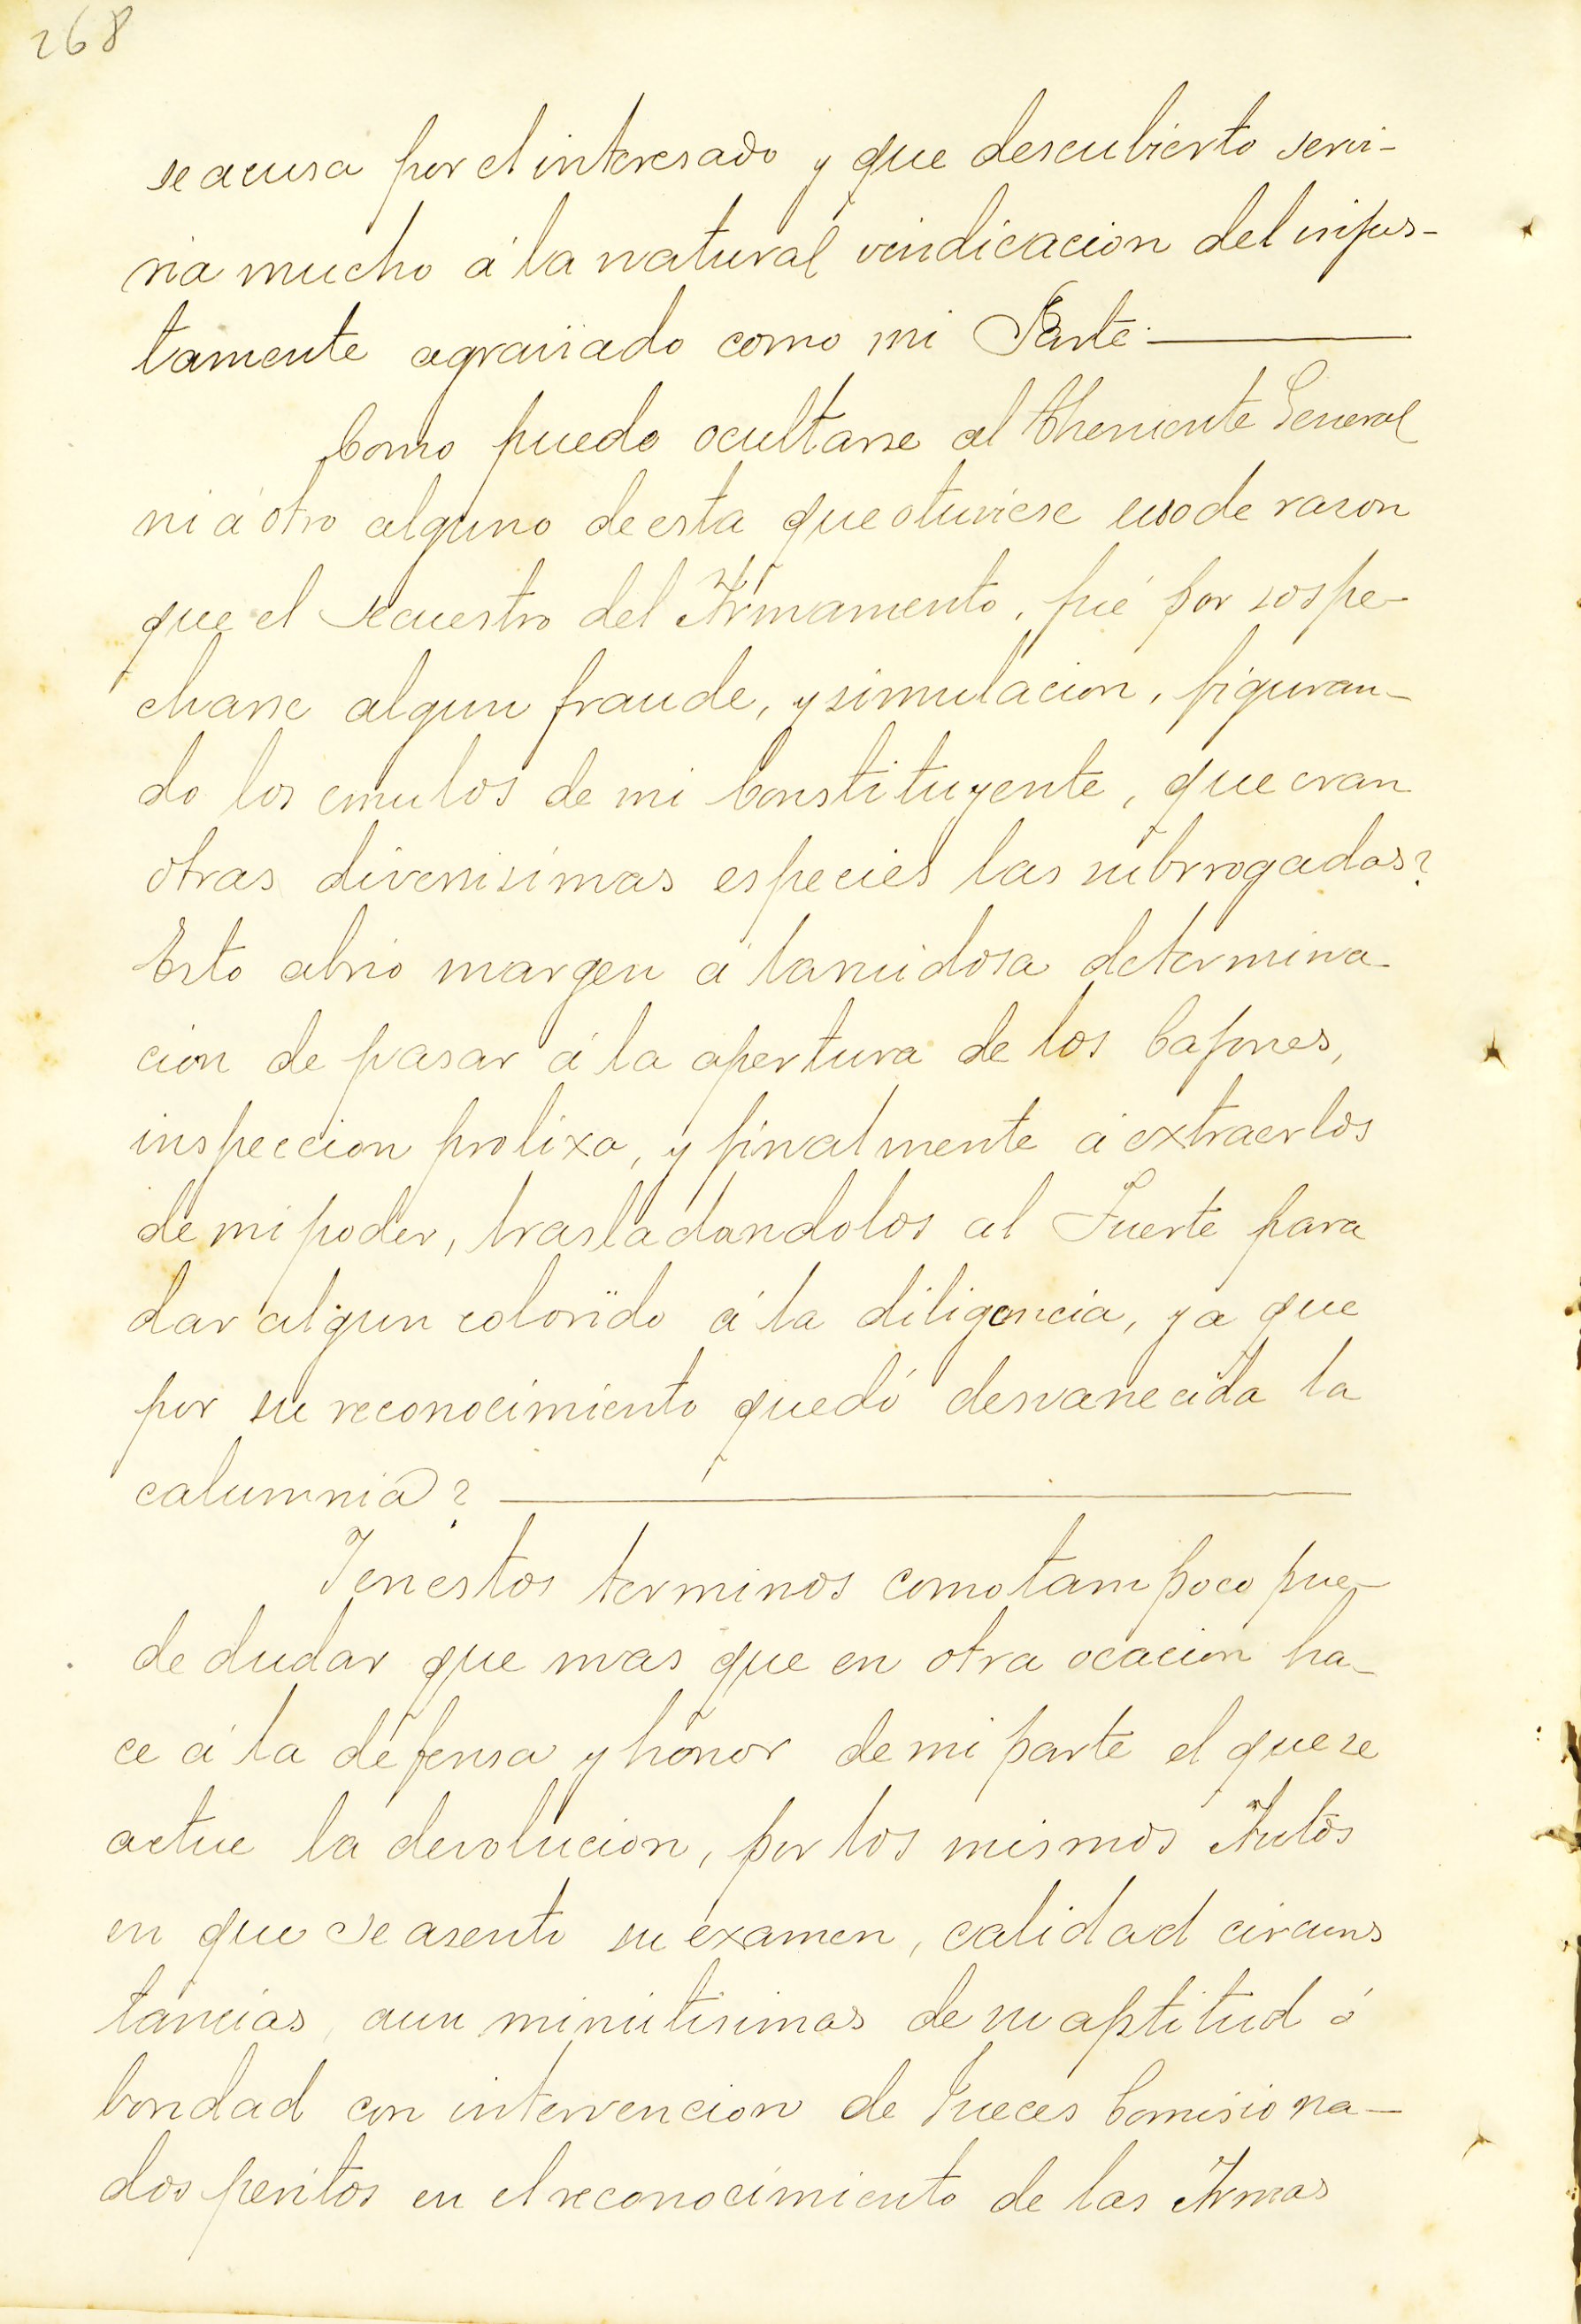 268
se acusa por el interesado y que descubierto servi-
ria mucho á la natural vindicacion del injus-
tamente agraviado como mi Parte.
Como puedo ocultarse al Theniente General
ni á otro alguno de esta que otuviese uso de rason
que el secuestro del Armamento, fué por sospe-
charse algun fraude, y simulacion, figuran-
do los emulos de mi Constituyente, que eran
otras diversisimas especies las subrrogadas?
Esto abrio margen á la ruidosa determina-
cion de pasar á la apertura de los Cajones,
inspeccion prolixa, y finalmente á extraerlos
de mi poder, trasladandolos al Fuerte para
dar algun colorido á la diligencia, ya que
por su reconocimiento quedó desvanecida la
calumnia?
Y en estos terminos como tampoco pue-
de dudar que mas que en otra ocacion ha-
ce á la defensa y honor de mi parte el que se
actue la devolucion, por los mismos Autos
en que se asento su examen, calidad circuns
tancias, aun minutisimas de su aptitud ó
bondad con intervencion de Jueces Comisiona-
dos peritos en el reconocimiento de las Armas